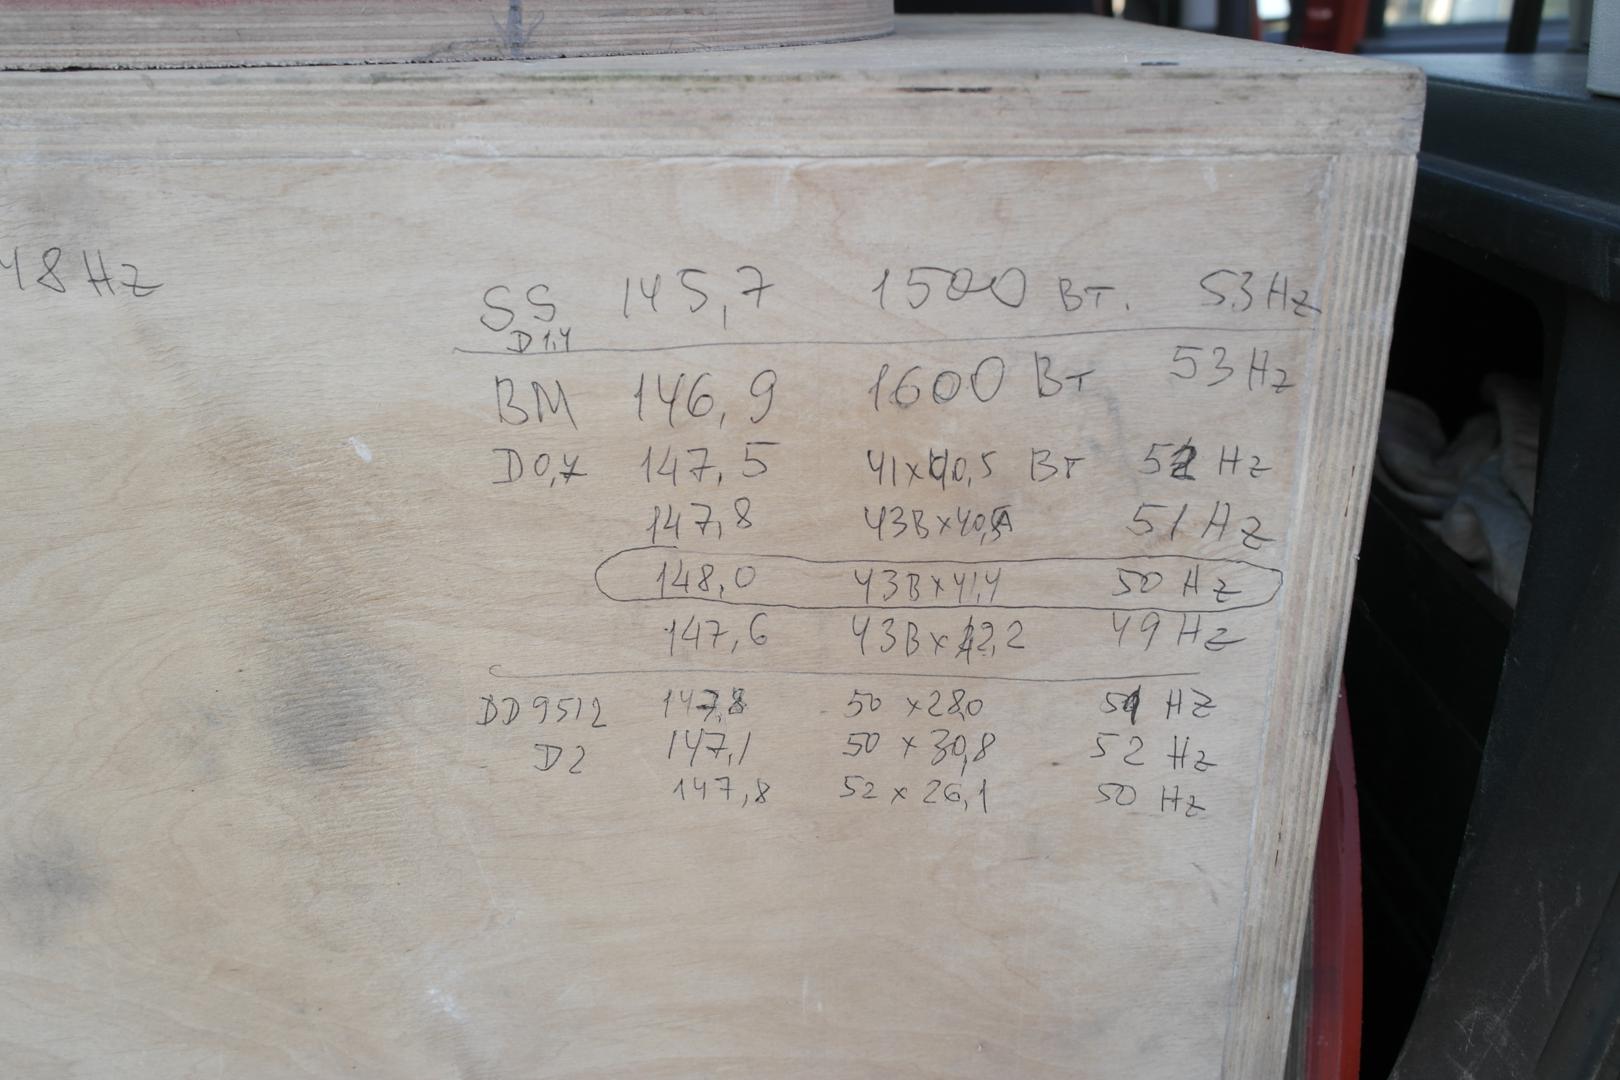 48 Hz
SS 145,7 1500 Вт. 53 Hz
D1,4
BM 146,9 1600 Вт 53 Hz
D0,7 147,5 41x40,5 Вт 52 Hz
147,8 43В x 40,5А 51 Hz
148,0 43В x 41,4 50 Hz
147,6 43В x 42,2 49 Hz
DD9512 147,8 50 x 28,0 51 HZ
D2 147,1 50 x 30,8 52 Hz
147,8 52 x 26,1 50 Hz